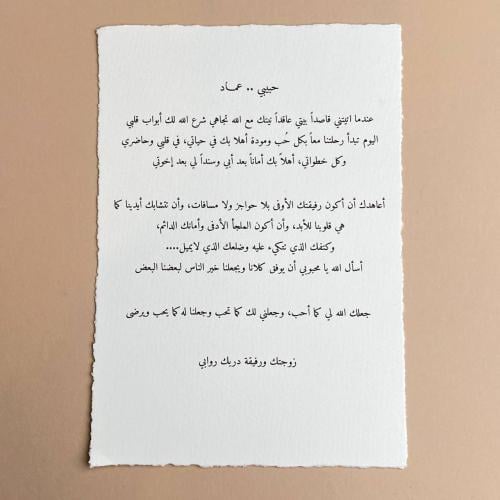 حبيبي .. عمـاد
عندما اتيتني قاصداً بيتي عاقداً نيتك مع الله تجاهي شرع الله لك أبواب قلبي
اليوم تبدأ رحلتنا معاً بكل حُب ومودة أهلا بك في حياتي، في قلبي وحاضري
وكل خطواتي، أهلاً بك أماناً بعد أبي وسنداً لي بعد إخوتي
أعاهدك أن أكون رفيقتك الأوفى بلا حواجز ولا مسافات، وأن تتشابك أيدينا كما
هي قلوبنا للأبد، وأن أكون الملجأ الأدفى وأمانك الدائم،
وكتفك الذي تتكيء عليه وضلعك الذي لايميل....
أسأل الله يا محبوبي أن يوفق كلانا ويجعلنا خير الناس لبعضنا البعض
جعلك الله لي كما أحب، وجعلني لك كما تحب وجعلنا له كما يحب ويرضى
زوجتك ورفيقة دربك روابي